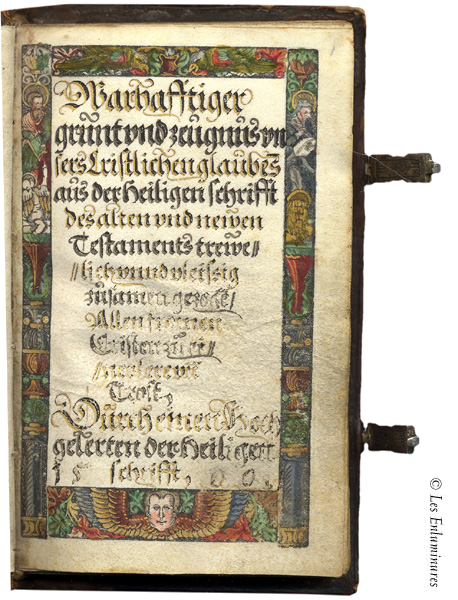 Warhafftiger
grünt vnd zeügnüs vn
sers Cristlichen glaübes
aüs der Heiligen schrifft
des alten vnd newen
Testaments trewe//
//lich vnnd vleissig
züsamen
Allen fromen
Cristen zü
Trost,
Dürch einen Hoch
gelerten der Heiligen
schrifft,
© Les Enluminures